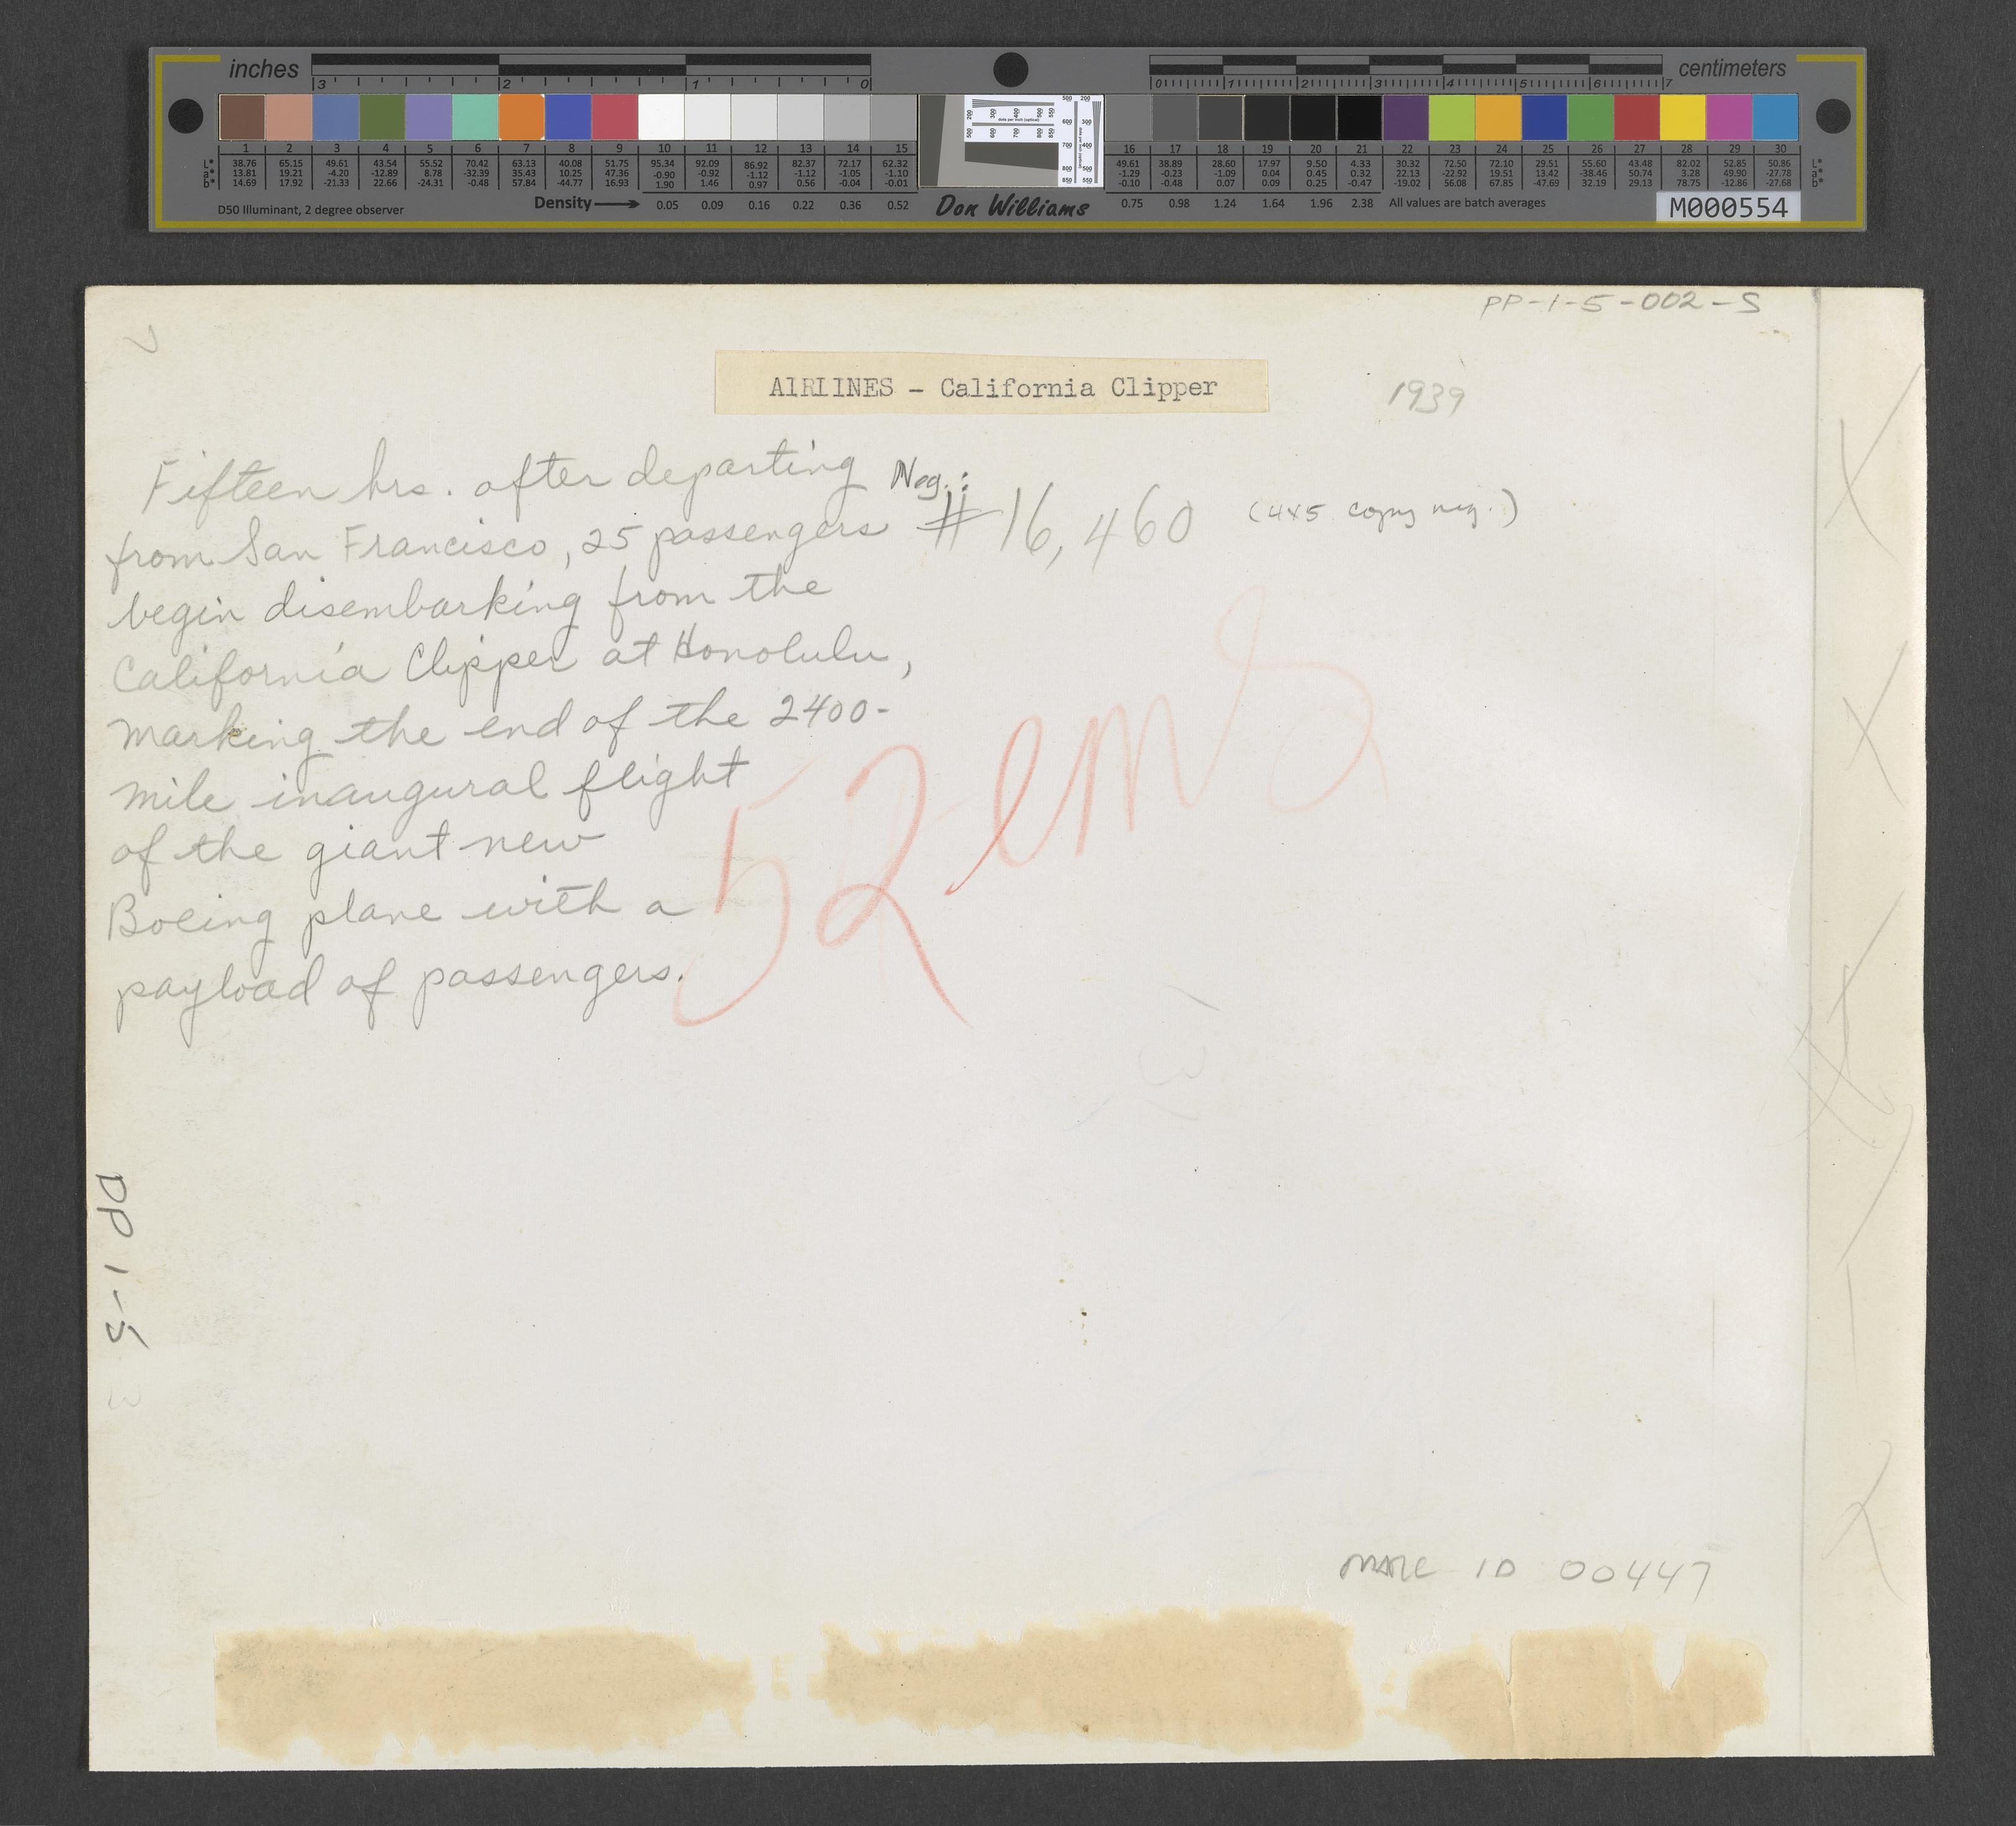 inches
3 2 1 0
centimeters
0 1 2 3 4 5 6 7
1 2 3 4 5 6 7 8 9 10 11 12 13 14 15
L* 38.76 65.15 49.61 43.54 55.52 70.42 63.13 40.08 51.75 95.34 92.09 86.92 82.37 72.17 62.32
a* 13.81 19.21 -4.20 -12.89 8.78 -32.39 35.43 10.25 47.36 -0.90 -0.92 -1.12 -1.12 -1.05 -1.10
b* 14.69 17.92 -21.33 22.66 -24.31 -0.48 57.84 -44.77 16.93 1.90 1.46 0.97 0.56 -0.04 -0.01
D50 Illuminant, 2 degree observer
Density 0.05 0.09 0.16 0.22 0.36 0.52
Don Williams
16 17 18 19 20 21 22 23 24 25 26 27 28 29 30
49.61 38.89 28.60 17.97 9.50 4.33 30.32 72.50 72.10 29.51 55.60 43.48 82.02 52.85 50.86 L*
-1.29 -0.23 -1.09 0.04 0.45 0.32 22.13 -22.92 19.51 13.42 -38.46 50.74 3.28 49.90 -27.78 a*
-0.10 -0.48 0.07 0.09 0.25 -0.47 -19.02 56.08 67.85 -47.69 32.19 29.13 78.75 -12.86 -27.68 b*
0.75 0.98 1.24 1.64 1.96 2.38 All values are batch averages
M000554
PP-1-5-002-S
AIRLINES - California Clipper
1939
Fifteen hrs. after departing
from San Francisco, 25 passengers
begin disembarking from the
California Clipper at Honolulu,
marking the end of the 2400-
mile inaugural flight
of the giant new
Boeing plane with a
payload of passengers.
Neg.:
# 16,460 (4x5 copy neg.)
52 ems
PP 1-5
MARC ID 00447